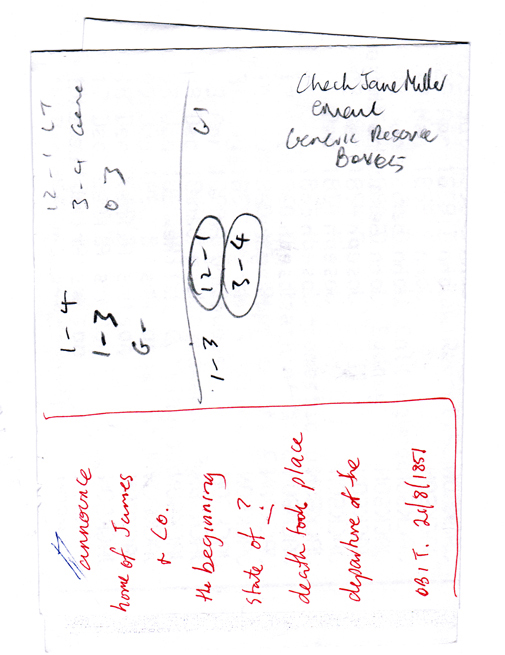 Check Jane Miller
email
Generic Resource
Boxes
12-1 LT
3-4 Gene
0 3
1-4
1-3
G-
G1
1-3 12-1
3-4
announce
home of James
+ Co.
the beginning
state of ?
death took place
departure of the
OBIT. 21/8/1851